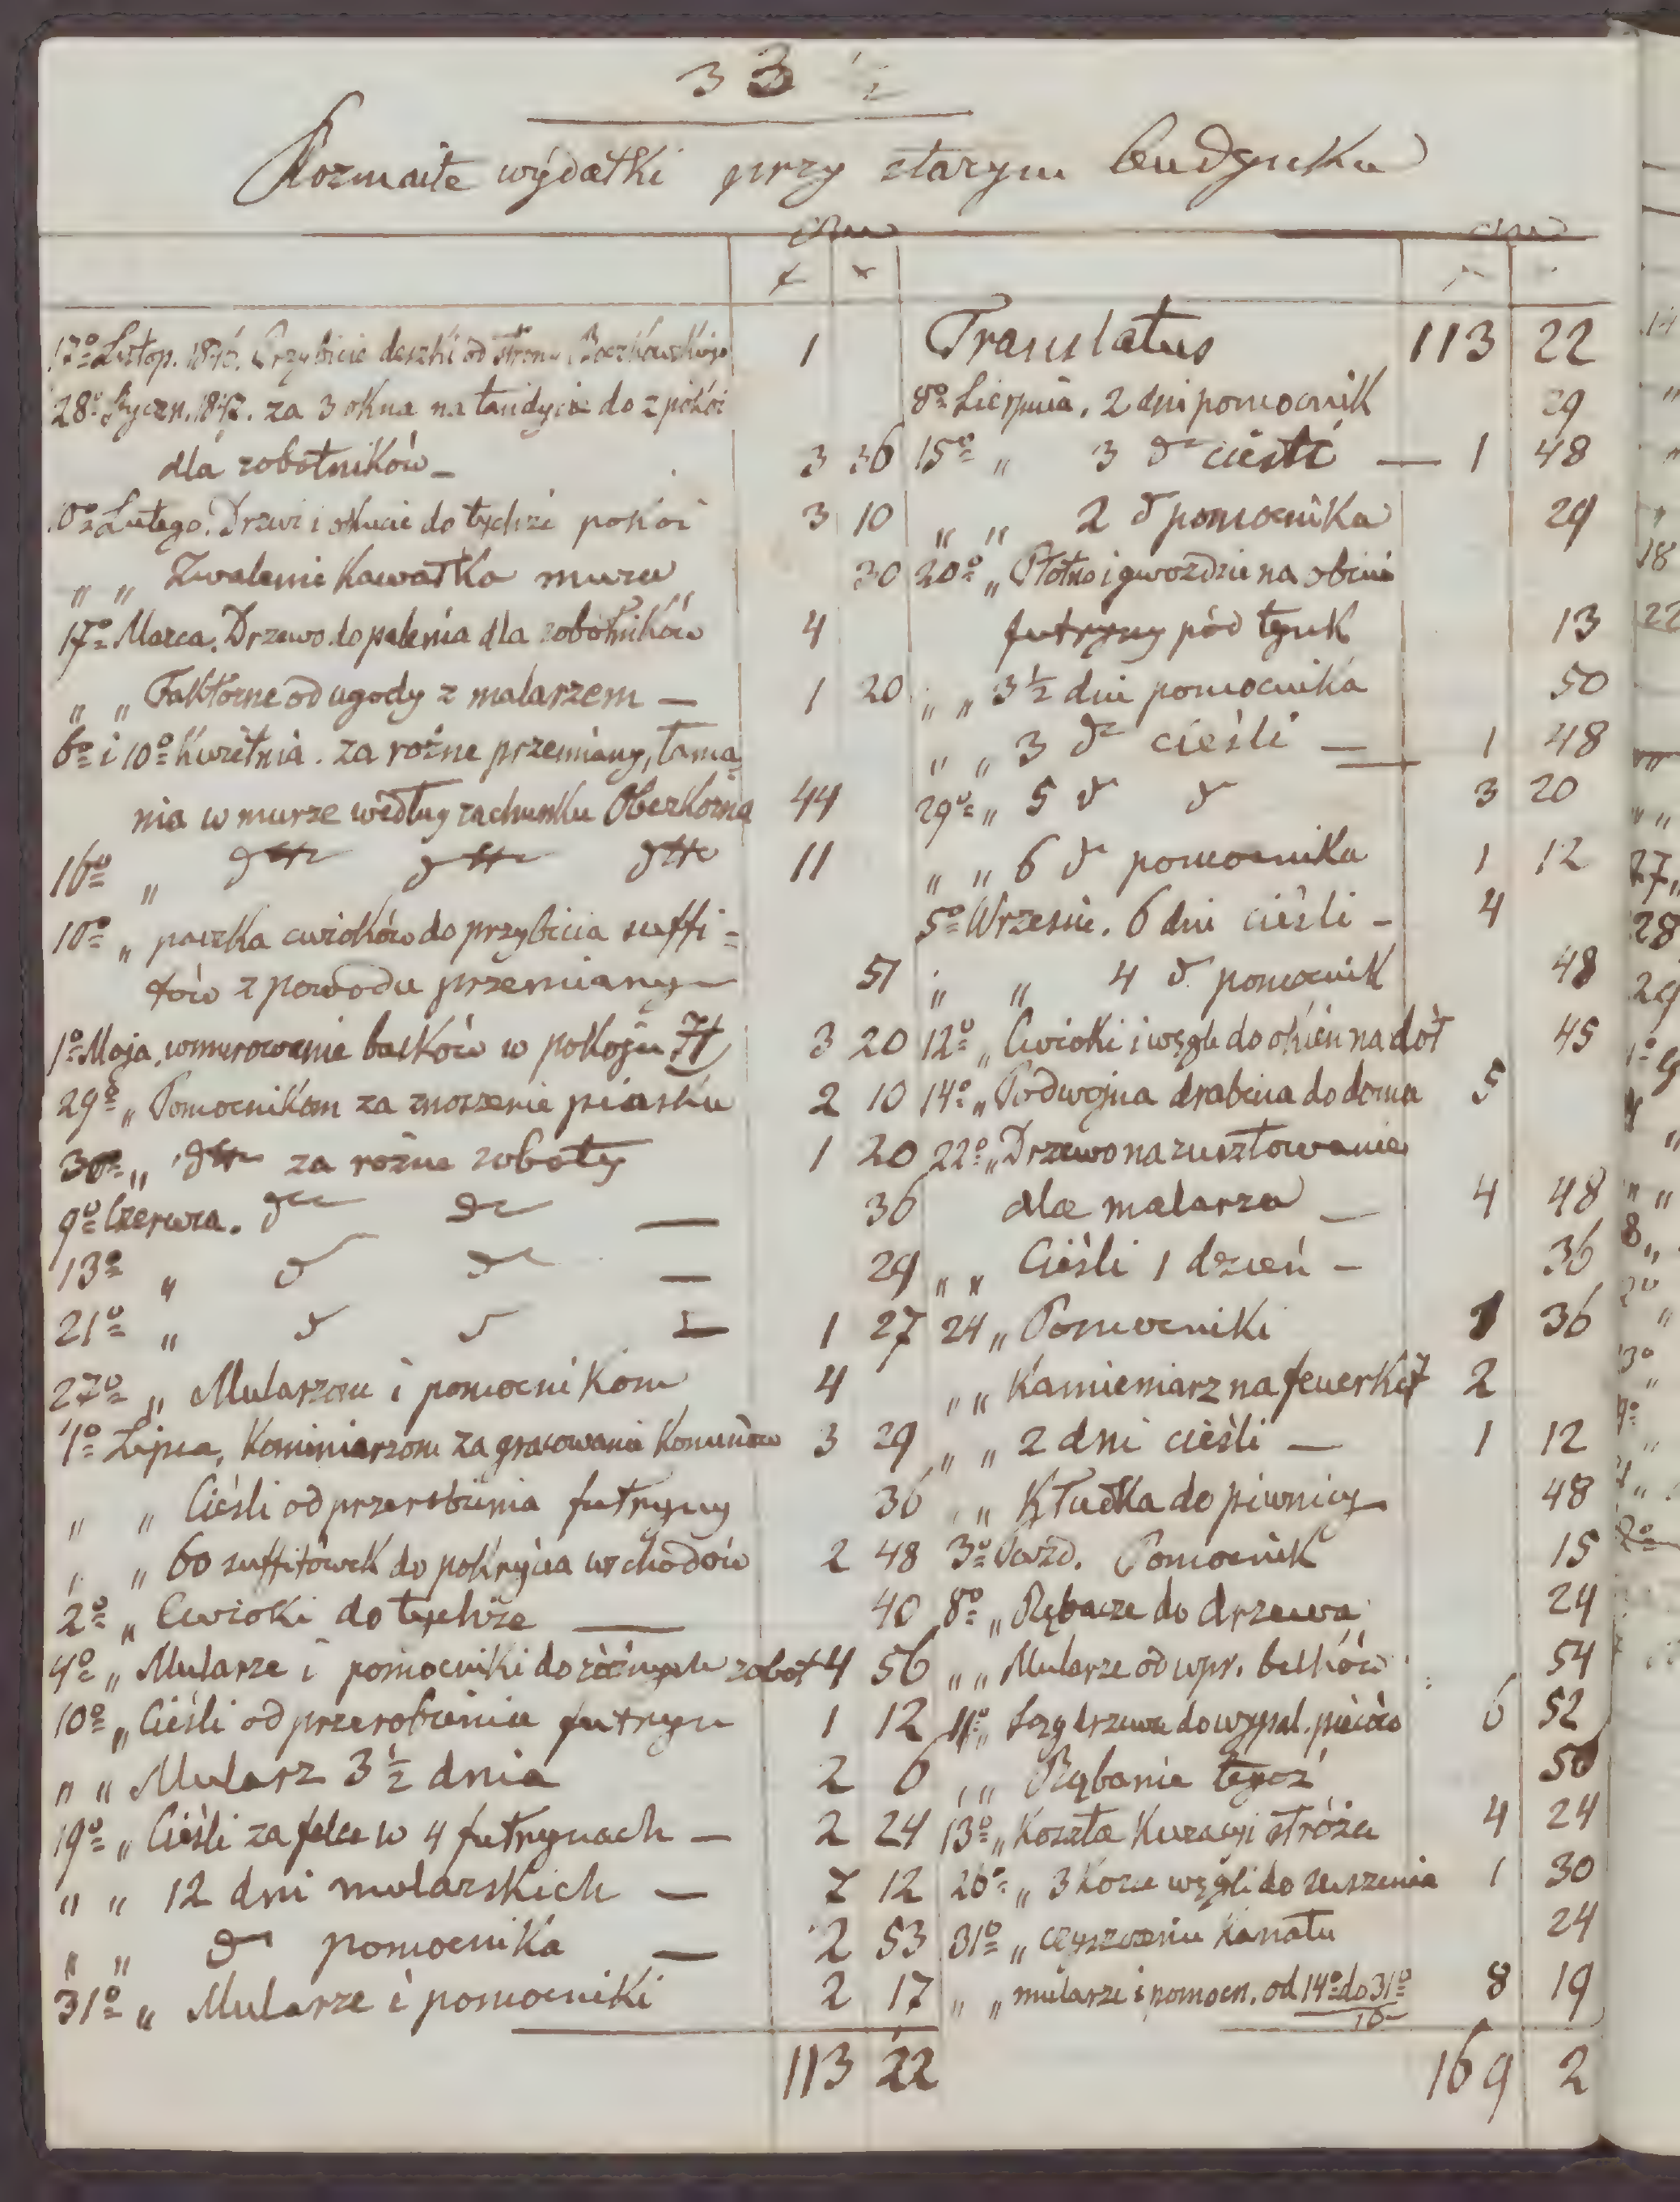 33
Rozmaite wydatki przy starym budynku
17º Listop. 184 . Przybicie deszki od strony
1
28º Styczn. 1847. za 3 okna na tandycie do 2 pokoi
dla robotników – 3 36
10º Lutego. Drzwi i okucie do tychże pokoi 3 10
„ „ Zwalenie kawałka muru 30
17º Marca. Drzewo do palenia dla robotników 4
„ „ Faktorne od ugody z malarzem — 1 20
6º i 10º Kwietnia. za rożne przemiany, łama
nia w murze według rachunku Oberkorna 44
16º „ dtto dtto dtto 11
10º „ paczka cwioków do przybicia suffi =
tów z powodu przemiany 51
1º Maja. wmurowanie balków w pokoju 3 20
29º „ Pomocnikom za znoszenie piasku 2 10
30º „ dtto za rożne roboty 1 20
9º Czerwca. dto dto — 36
13º „ do dto — 29
21º „ do do — 1 27
27º „ Mularzom i pomocnikom 4
1º Lipca, Kominiarzom za gracowanie Kominów 3 29
„ „ Cieśli od przerobienia futryny 36
„ „ 60 suffitówek do pokrycia wschodów 2 48
2º „ Cwioki do tychże — 40
4º „ Mularze i pomocniki do różnych robot 4 56
10º „ Cieśli od przerobienia futryn 1 12
„ „ Mularz 3 ½ dnia 2 6
19º „ Cieśli za felce w 4 futrynach — 2 24
„ „ 12 dni mularskich — 7 12
„ „ do pomocnika — 2 53
31º „ Mularze i pomocniki 2 17
113 22
Translatus 113 22
8º Sierpnia. 2 dni pomocnik 29
15º „ 3 do cieśli — 1 48
„ „ 2 do pomocnika 29
20º „ Płótno i gwoździe na obicie
futryny pod tynk 13
„ „ 3 ½ dni pomocnika 50
„ „ 3 do cieśli — 1 48
29º „ 5 do do 3 20
„ „ 6 do pomocnika 1 12
5º Wrześn. 6 dni cieśli – 4
„ „ 4 do pomocnik 48
12º „ Cwioki i węgle do okien na dół 45
14º „ Podwojna drabina do domu 5
22º „ Drzewo na rusztowanie
dla malarza — 4 48
„ „ Cieśli 1 dzień – 36
24 „ Pomocniki 1 36
„ „ Kamieniarz na 2
„ „ 2 dni cieśli — 1 12
„ „ Kłudka do piwnicy 48
3º Paźd. Pomocnik 15
8º „ Rębacze do drzewa 24
„ „ Mularze od wpr. belków 54
11º „ Sag drzewa do wypal. pieców 6 52
„ „ Rąbanie tegoż 50
13º „ Koszta Kuracyi stróża 4 24
20º „ 3 Korce węgli do suszenia 1 30
31º „ czyszczenie Kanału 24
„ „ mularze i pomocn. od 14º do 31º 8 19
169 2